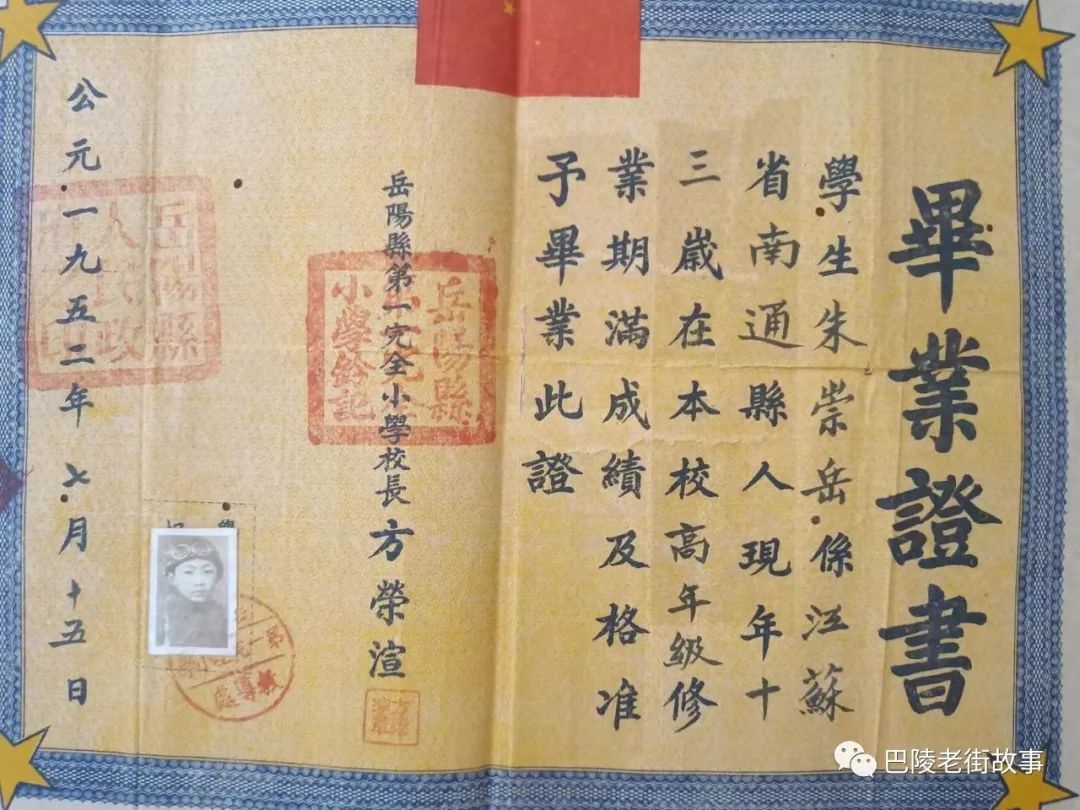 畢業證書
學生朱崇岳係江蘇
省南通縣人現年十
三歲在本校高年級修
業期滿成績及格准
予畢業此證
岳陽縣第一完全小學校長方榮渲
岳陽縣
小學鈐記
公元一九五二年七月十五日
岳陽縣
人民政
巴陵老街故事